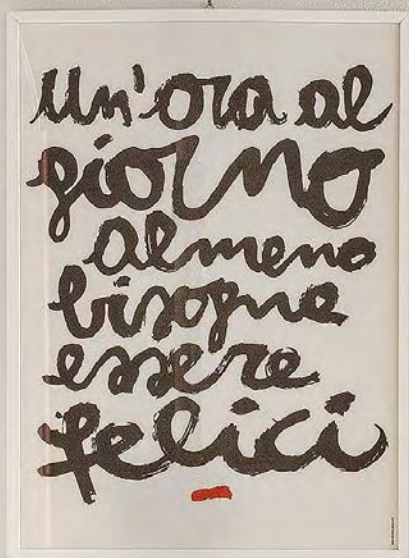 Un'ora al
giorno
almeno
bisogna
essere
felici